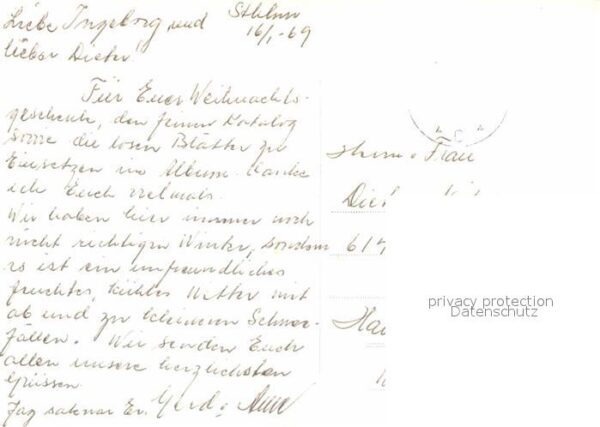 Sthlm
16/1-69
Liebe Ingeborg und
lieber Dieter!
Für Euer Weihnachts-
geschenk, den feinen Katalog
sowie die losen Blätter zu
Einsetzen im Album danke
ich Euch vielmals.
Wir haben hier immer noch
nicht richtigen Winter, sondern
es ist ein unfreundliches
feuchtes, kühles Wetter mit
ab und zu kleineren Schnee-
fällen. Wir senden Euch
allen unsere herzlichsten
Grüssen
Jag saknar Er. Gerd o
Herrn o Frau
Die
61
Ha
privacy protection
Datenschutz